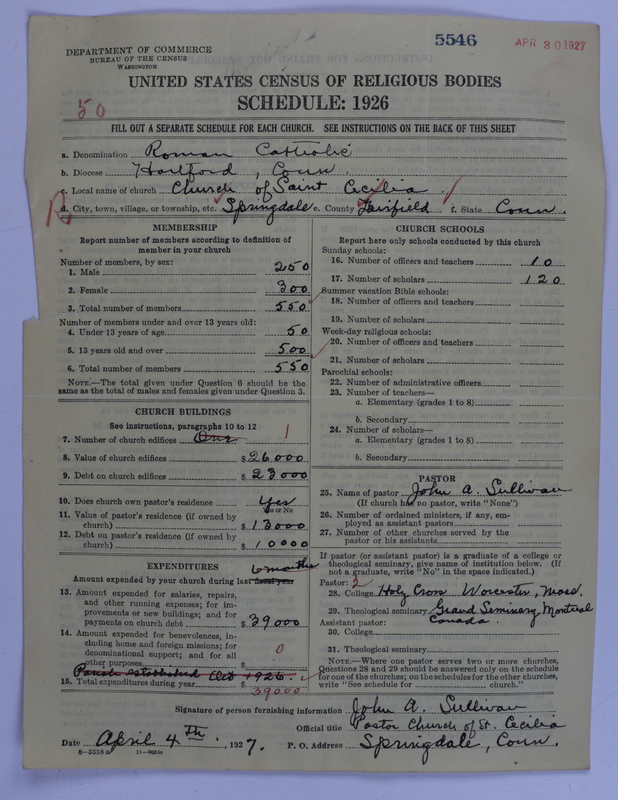 5546
APR 30 1927
DEPARTMENT OF COMMERCE
BUREAU OF THE CENSUS
WASHINGTON
UNITED STATES CENSUS OF RELIGIOUS BODIES
SCHEDULE: 1926
50
FILL OUT A SEPARATE SCHEDULE FOR EACH CHURCH. SEE INSTRUCTIONS ON THE BACK OF THIS SHEET
a. Denomination Roman Catholic
b. Diocese Hartford, Conn.
c. Local name of church Church of Saint Cecilia.
d. City, town, village, or township, etc. Springdale e. County Fairfield f. State Conn.
MEMBERSHIP
Report number of members according to definition of
member in your church
Number of members, by sex:
1. Male 250
2. Female 300
3. Total number of members 550
Number of members under and over 13 years old:
4. Under 13 years of age 50
5. 13 years old and over 500
6. Total number of members 550
NOTE.—The total given under Question 6 should be the
same as the total of males and females given under Question 3.
CHURCH BUILDINGS
See instructions, paragraphs 10 to 12
7. Number of church edifices One 1
8. Value of church edifices $26000
9. Debt on church edifices $23000
10. Does church own pastor's residence Yes
Yes or No
11. Value of pastor's residence (if owned by
church) $13000
12. Debt on pastor's residence (if owned by
church) $10000
EXPENDITURES
6 months
Amount expended by your church during last fiscal year
13. Amount expended for salaries, repairs,
and other running expenses; for im-
provements or new buildings; and for
payments on church debt $39000
14. Amount expended for benevolences, in-
cluding home and foreign missions; for
denominational support; and for all
other purposes $ 0
Parish established Oct 1926.
15. Total expenditures during year $ 39000
CHURCH SCHOOLS
Report here only schools conducted by this church
Sunday schools:
16. Number of officers and teachers 10
17. Number of scholars 120
Summer vacation Bible schools:
18. Number of officers and teachers
19. Number of scholars
Week-day religious schools:
20. Number of officers and teachers
21. Number of scholars
Parochial schools:
22. Number of administrative officers
23. Number of teachers—
a. Elementary (grades 1 to 8)
b. Secondary
24. Number of scholars—
a. Elementary (grades 1 to 8)
b. Secondary
PASTOR
25. Name of pastor John A. Sullivan
(If church has no pastor, write "None")
26. Number of ordained ministers, if any, em-
ployed as assistant pastors
27. Number of other churches served by the
pastor or his assistants
If pastor (or assistant pastor) is a graduate of a college or
theological seminary, give name of institution below. (If
not a graduate, write "No" in the space indicated.)
Pastor: 2
28. College Holy Cross Worcester, Mass.
29. Theological seminary Grand Seminary, Montreal
Assistant pastor: Canada.
30. College
31. Theological seminary
NOTE.—Where one pastor serves two or more churches,
Questions 28 and 29 should be answered only on the schedule
for one of the churches; on the schedules for the other churches,
write "See schedule for church."
Signature of person furnishing information John A. Sullivan
Official title Pastor Church of St. Cecilia
Date April 4th, 1927. P. O. Address Springdale, Conn.